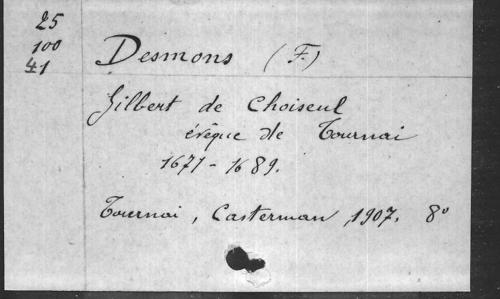 25
100
41
Desmons (F.)
Gilbert de Choiseul
évêque de Tournai
1671-1689.
Tournai, Casterman, 1907. 8°